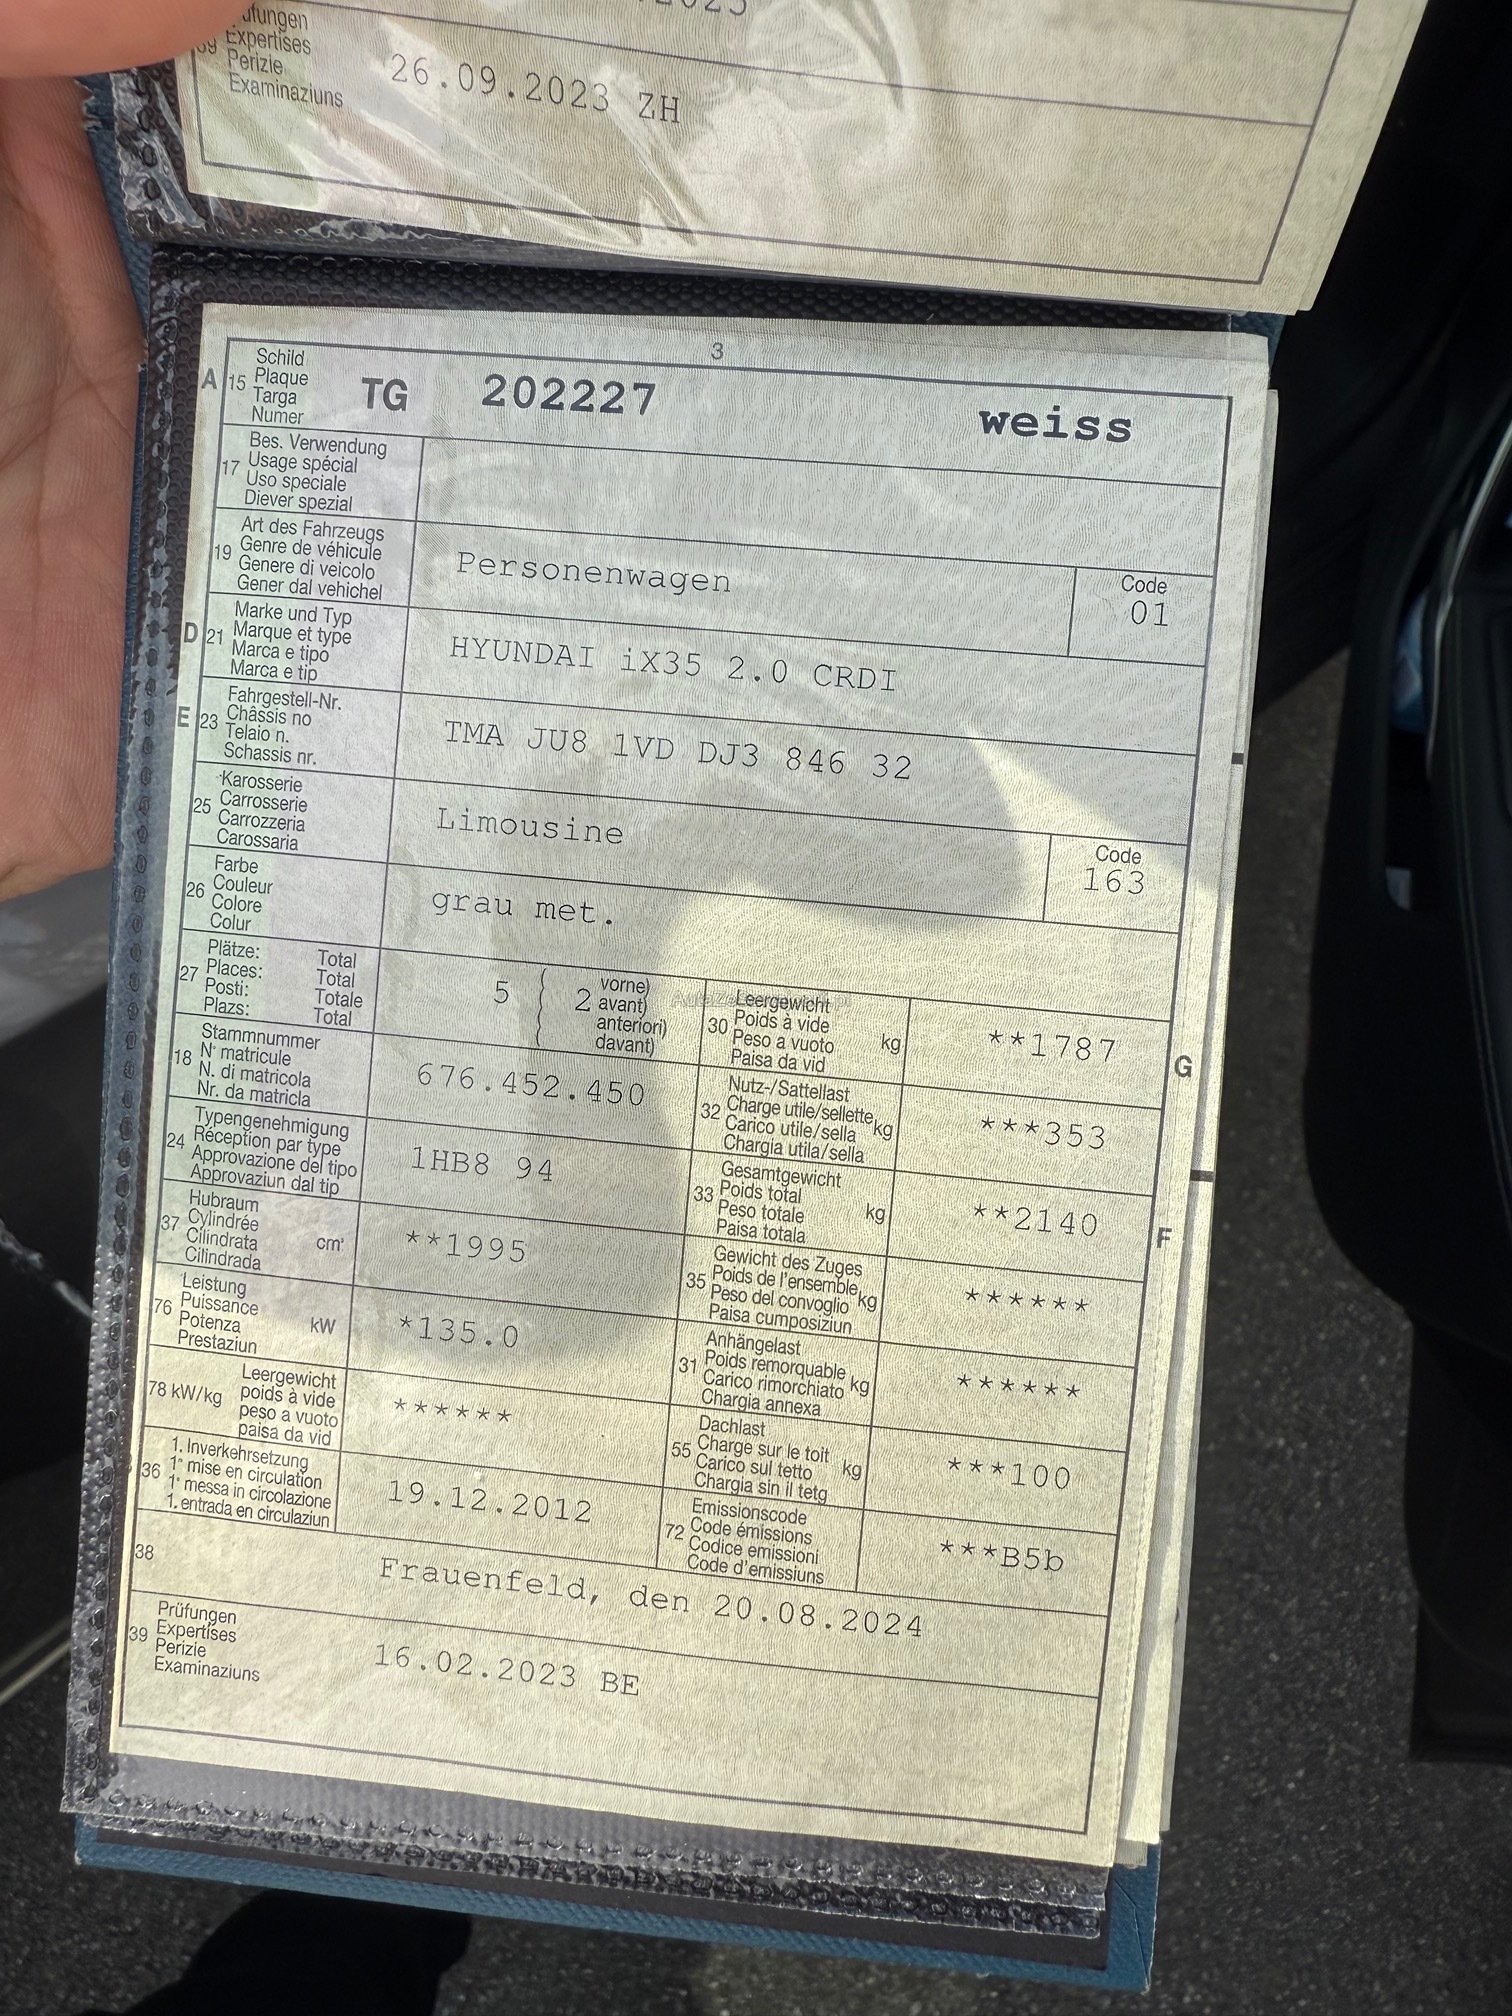 Prüfungen
Expertises
Perizie
Examinaziuns
26.09.2023 ZH
3
A 15 Schild
Plaque
Targa
Numer
TG 202227 weiss
17 Bes. Verwendung
Usage spécial
Uso speciale
Diever spezial
19 Art des Fahrzeugs
Genre de véhicule
Genere di veicolo
Gener dal vehichel
Personenwagen
Code
01
D 21 Marke und Typ
Marque et type
Marca e tipo
Marca e tip
HYUNDAI iX35 2.0 CRDI
E 23 Fahrgestell-Nr.
Châssis no
Telaio n.
Schassis nr.
TMA JU8 1VD DJ3 846 32
25 Karosserie
Carrosserie
Carrozzeria
Carossaria
Limousine
Code
163
26 Farbe
Couleur
Colore
Colur
grau met.
27 Plätze: Total
Places: Total
Posti: Totale
Plazs: Total
5 2 vorne)
avant)
anteriori)
davant)
30 Leergewicht
Poids à vide
Peso a vuoto
Paisa da vid
kg
**1787
G
18 Stammnummer
N° matricule
N. di matricola
Nr. da matricla
676.452.450
32 Nutz-/Sattellast
Charge utile/sellette
Carico utile/sella
Chargia utila/sella
kg
***353
24 Typengenehmigung
Réception par type
Approvazione del tipo
Approvaziun dal tip
1HB8 94
33 Gesamtgewicht
Poids total
Peso totale
Paisa totala
kg
**2140
F
37 Hubraum
Cylindrée
Cilindrata
Cilindrada
cm³
**1995
35 Gewicht des Zuges
Poids de l'ensemble
Peso del convoglio
Paisa cumposiziun
kg
******
76 Leistung
Puissance
Potenza
Prestaziun
kW
*135.0
31 Anhängelast
Poids remorquable
Carico rimorchiato
Chargia annexa
kg
******
78 kW/kg Leergewicht
poids à vide
peso a vuoto
paisa da vid
******
55 Dachlast
Charge sur le toit
Carico sul tetto
Chargia sin il tetg
kg
***100
36 1. Inverkehrsetzung
1° mise en circulation
1° messa in circolazione
1. entrada en circulaziun
19.12.2012
72 Emissionscode
Code émissions
Codice emissioni
Code d'emissiuns
***B5b
38
Frauenfeld, den 20.08.2024
39 Prüfungen
Expertises
Perizie
Examinaziuns
16.02.2023 BE